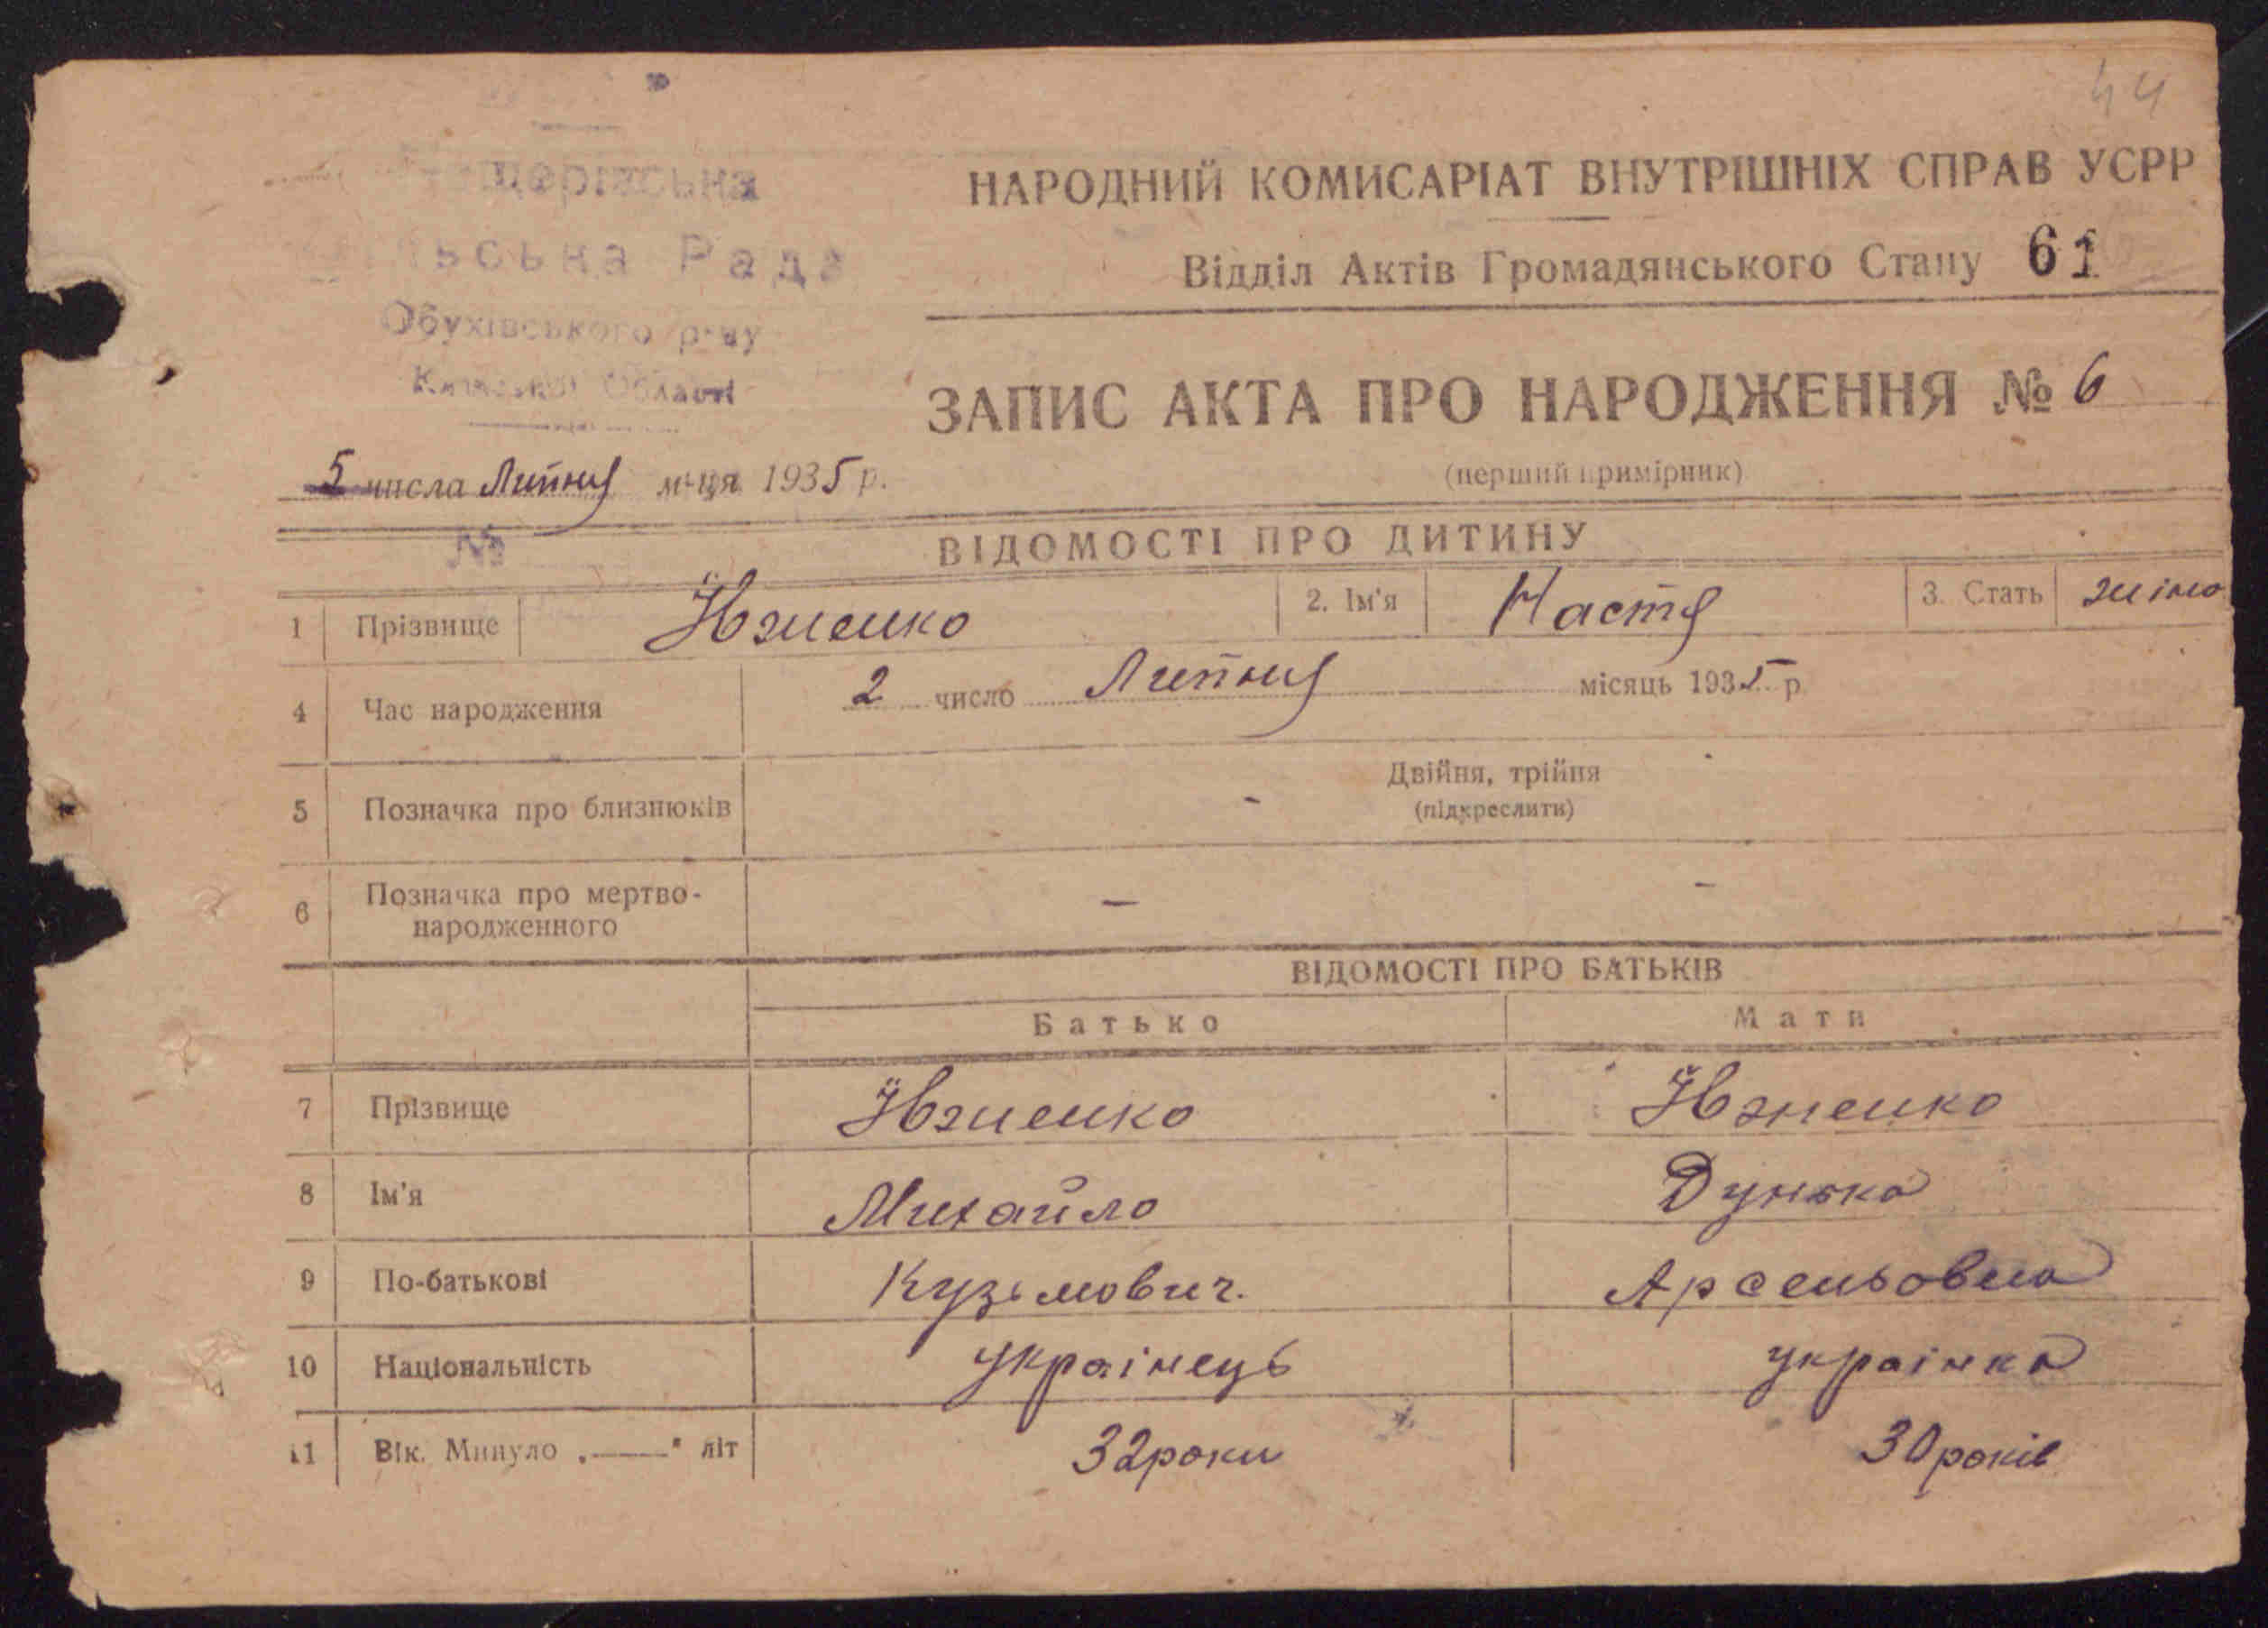 44
НАРОДНИЙ КОМИСАРІАТ ВНУТРІШНІХ СПРАВ УСРР
Відділ Актів Громадянського Стану 61
Рада
Обухівського р-ну
Київської Області
ЗАПИС АКТА ПРО НАРОДЖЕННЯ № 6
(перший примірник)
5 числа Липня м-ця 1935 р.
№
ВІДОМОСТІ ПРО ДИТИНУ
1 Прізвище Южненко 2. Ім'я Настя 3. Стать жіно
4 Час народження 2 число Липня місяць 1935 р
5 Позначка про близнюків - Двійня, трійня
(підкреслити)
6 Позначка про мертво-
народженного — -
ВІДОМОСТІ ПРО БАТЬКІВ
Батько Мати
7 Прізвище
8 Ім'я Михайло Дунька
9 По-батькові Кузьмович. Арсеньовна
10 Національність українець українка
11 Вік. Минуло „——" літ 32 роки 30 років